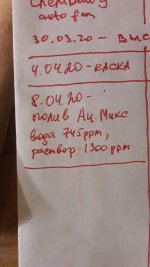 auto fem
30.03.20 - ВМС
4.04.20 - КАСКА
8.04.20 -
полив Ац. Микс
вода 745 ppm,
раствор 1300 ppm